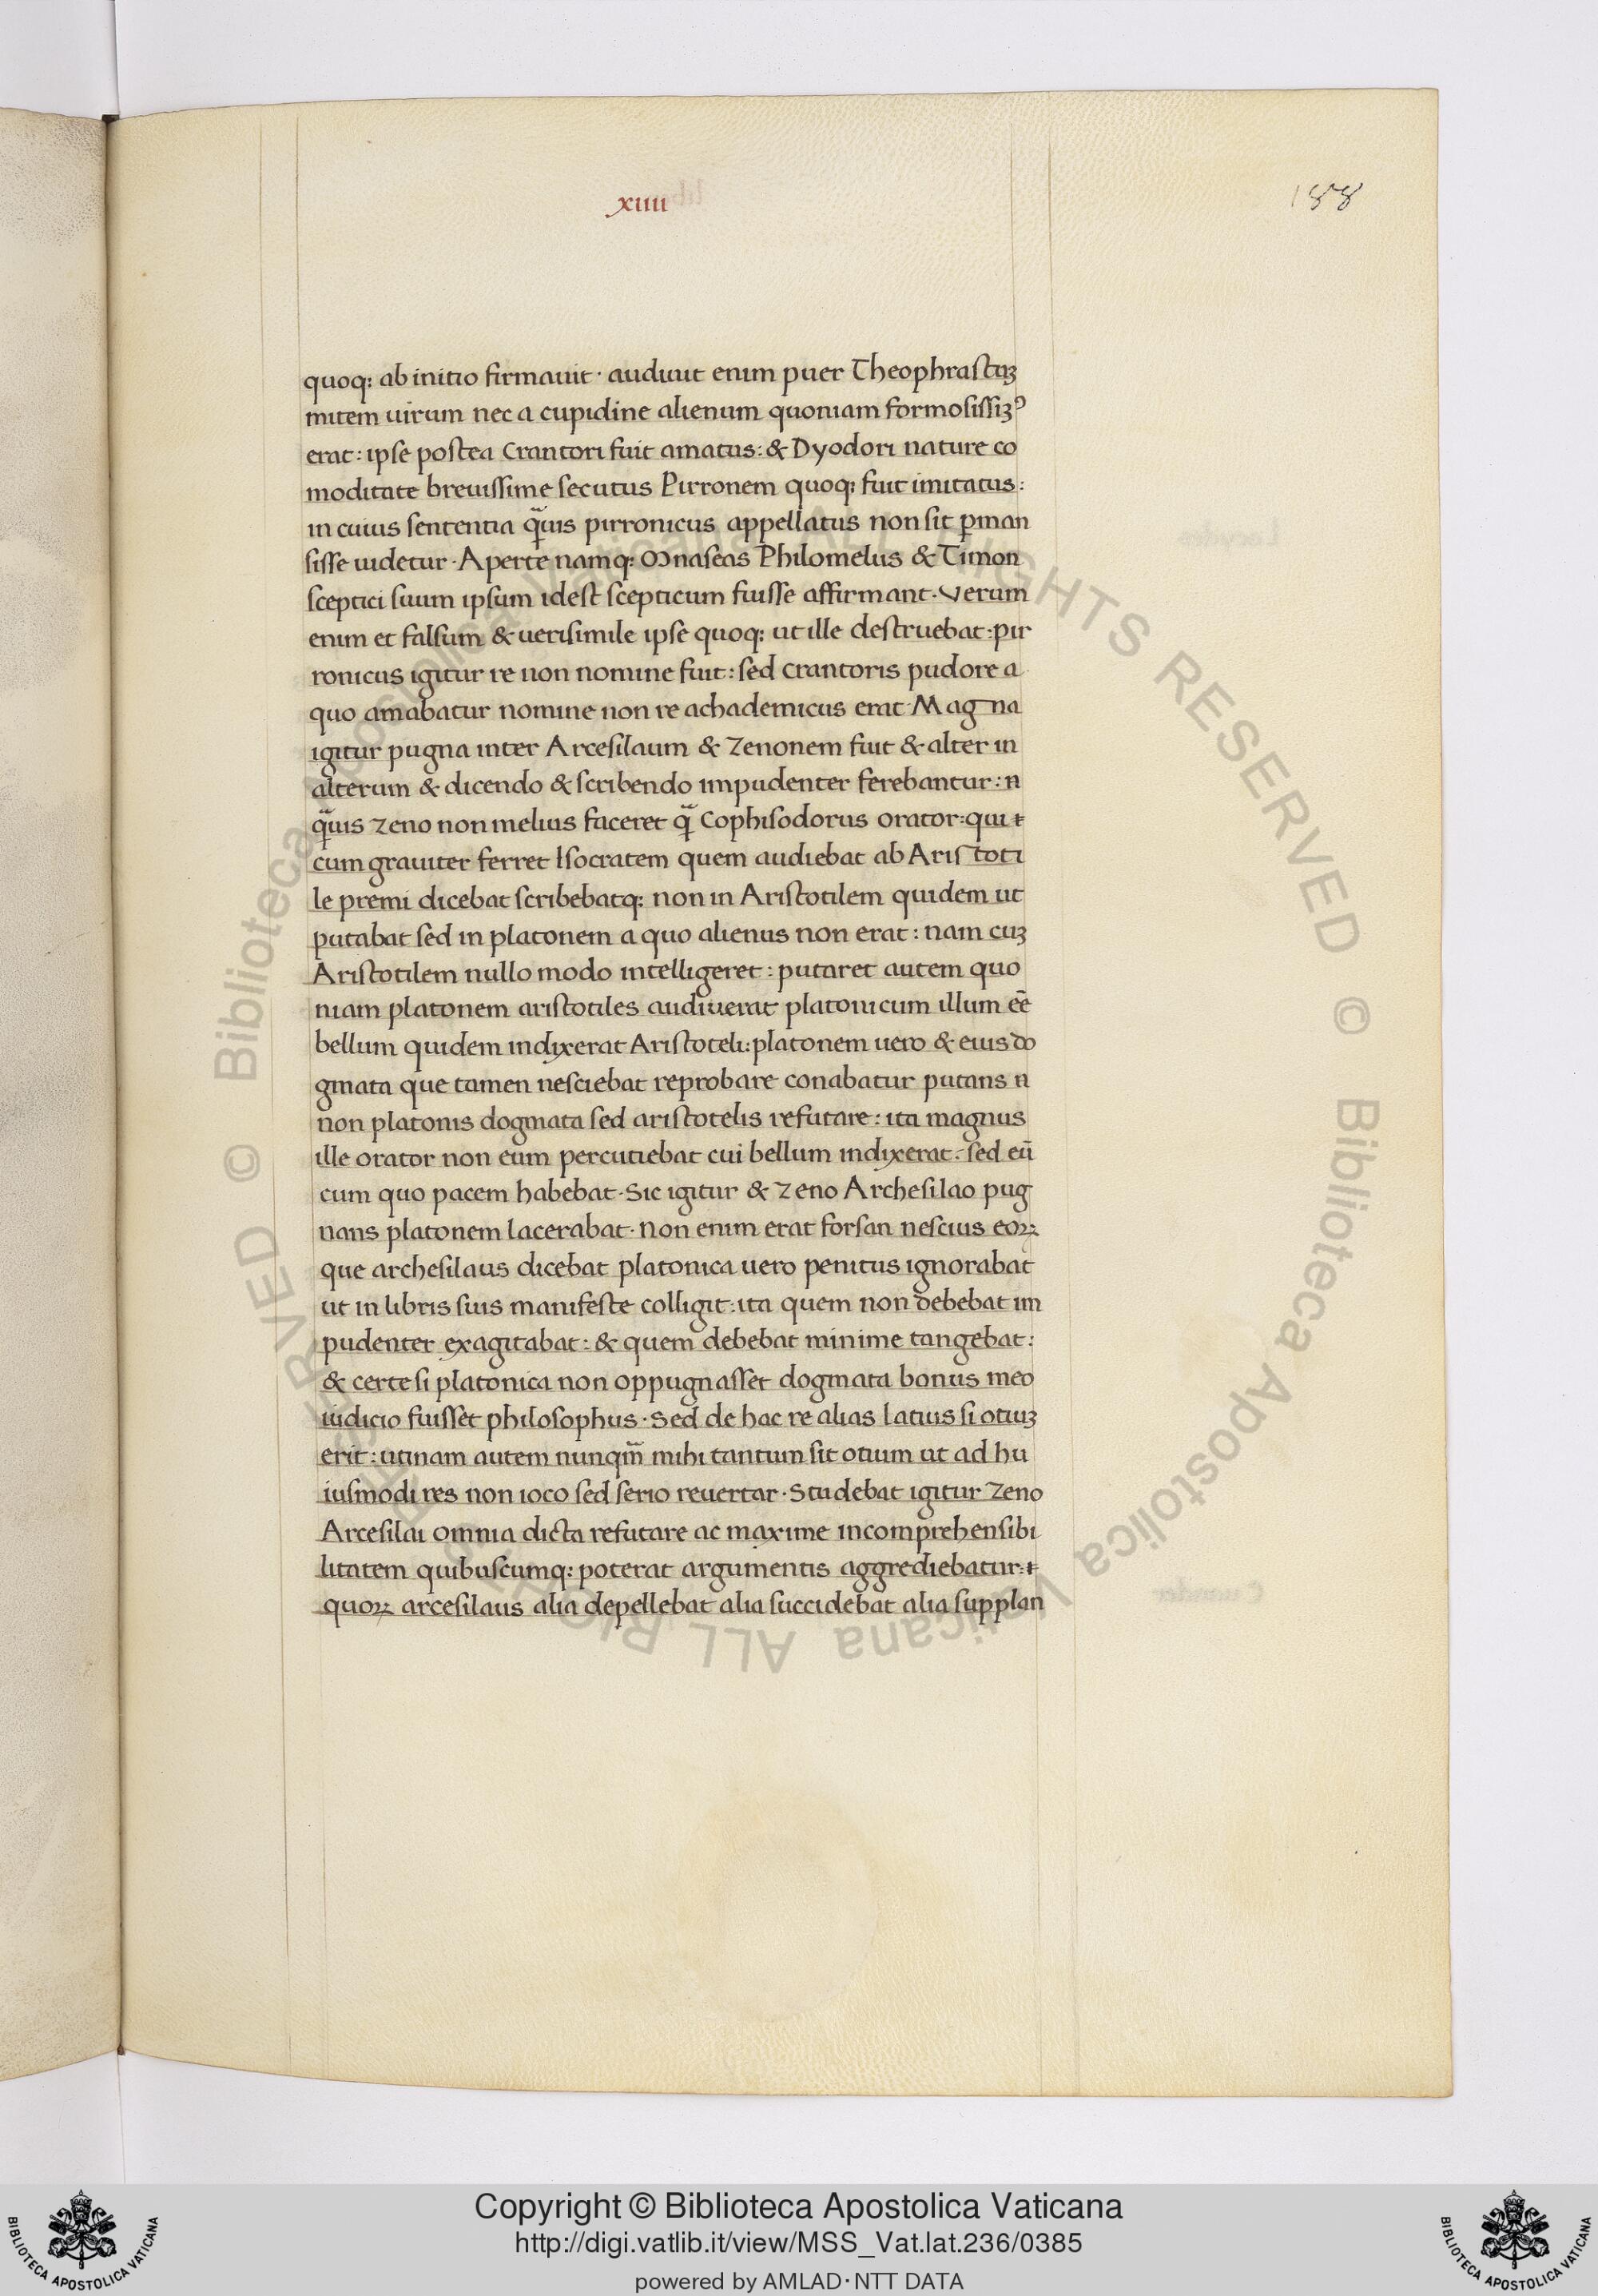 xiiii
188
quoq: ab initio firmauit · audiuit enim puer Theophrastuꝫ
mitem uirum nec a cupidine alienum quoniam formosissiꝫꝰ
erat: ipse postea Crantori fuit amatus: & Dyodori nature co
moditate breuissime secutus Pirronem quoq: fuit imitatus:
in cuius sententia q̃uis pirronicus appellatus non sit ꝑman
sisse uidetur · Aperte namq: Mnaseas Philomelus & Timon
sceptici suum ipsum idest scepticum fuisse affirmant · Verum
enim et falsum & uerisimile ipse quoq: ut ille destruebat: pir
ronicus igitur re non nomine fuit: sed Crantoris pudore a
quo amabatur nomine non re achademicus erat · Magna
igitur pugna inter Arcesilaum & Zenonem fuit & alter in
alterum & dicendo & scribendo impudenter ferebantur: n
q̃uis Zeno non melius faceret q̃ Cophisodorus orator: qui t
cum grauiter ferret Isocratem quem audiebat ab Aristoti
le premi dicebat scribebatq: non in Aristotilem quidem ut
putabat sed in platonem a quo alienus non erat: nam cuꝫ
Aristotilem nullo modo intelligeret: putaret autem quo
niam platonem aristotiles audiuerat platonicum illum eē
bellum quidem indixerat Aristoteli: platonem uero & eius do
gmata que tamen nesciebat reprobare conabatur putans n
non platonis dogmata sed aristotelis refutare: ita magnus
ille orator non eum percutiebat cui bellum indixerat: sed eū
cum quo pacem habebat · Sic igitur & Zeno Archesilao pug
nans platonem lacerabat · Non enim erat forsan nescius eoꝝ
que archesilaus dicebat platonica uero penitus ignorabat
ut in libris suis manifeste colligit: ita quem non debebat im
pudenter exagitabat: & quem debebat minime tangebat:
& certe si platonica non oppugnasset dogmata bonus meo
iudicio fuisset philosophus · Sed de hac re alias latius si otiuꝫ
erit: utinam autem nunqm̃ mihi tantum sit otium ut ad hu
iusmodi res non ioco sed serio reuertar · Studebat igitur Zeno
Arcesilai omnia dicta refutare ac maxime incomprehensibi
litatem quibuscumq: poterat argumentis aggrediebatur: t
quoꝝ arcesilaus alia depellebat alia succidebat alia supplan
Copyright © Biblioteca Apostolica Vaticana
http://digi.vatlib.it/view/MSS_Vat.lat.236/0385
powered by AMLAD · NTT DATA